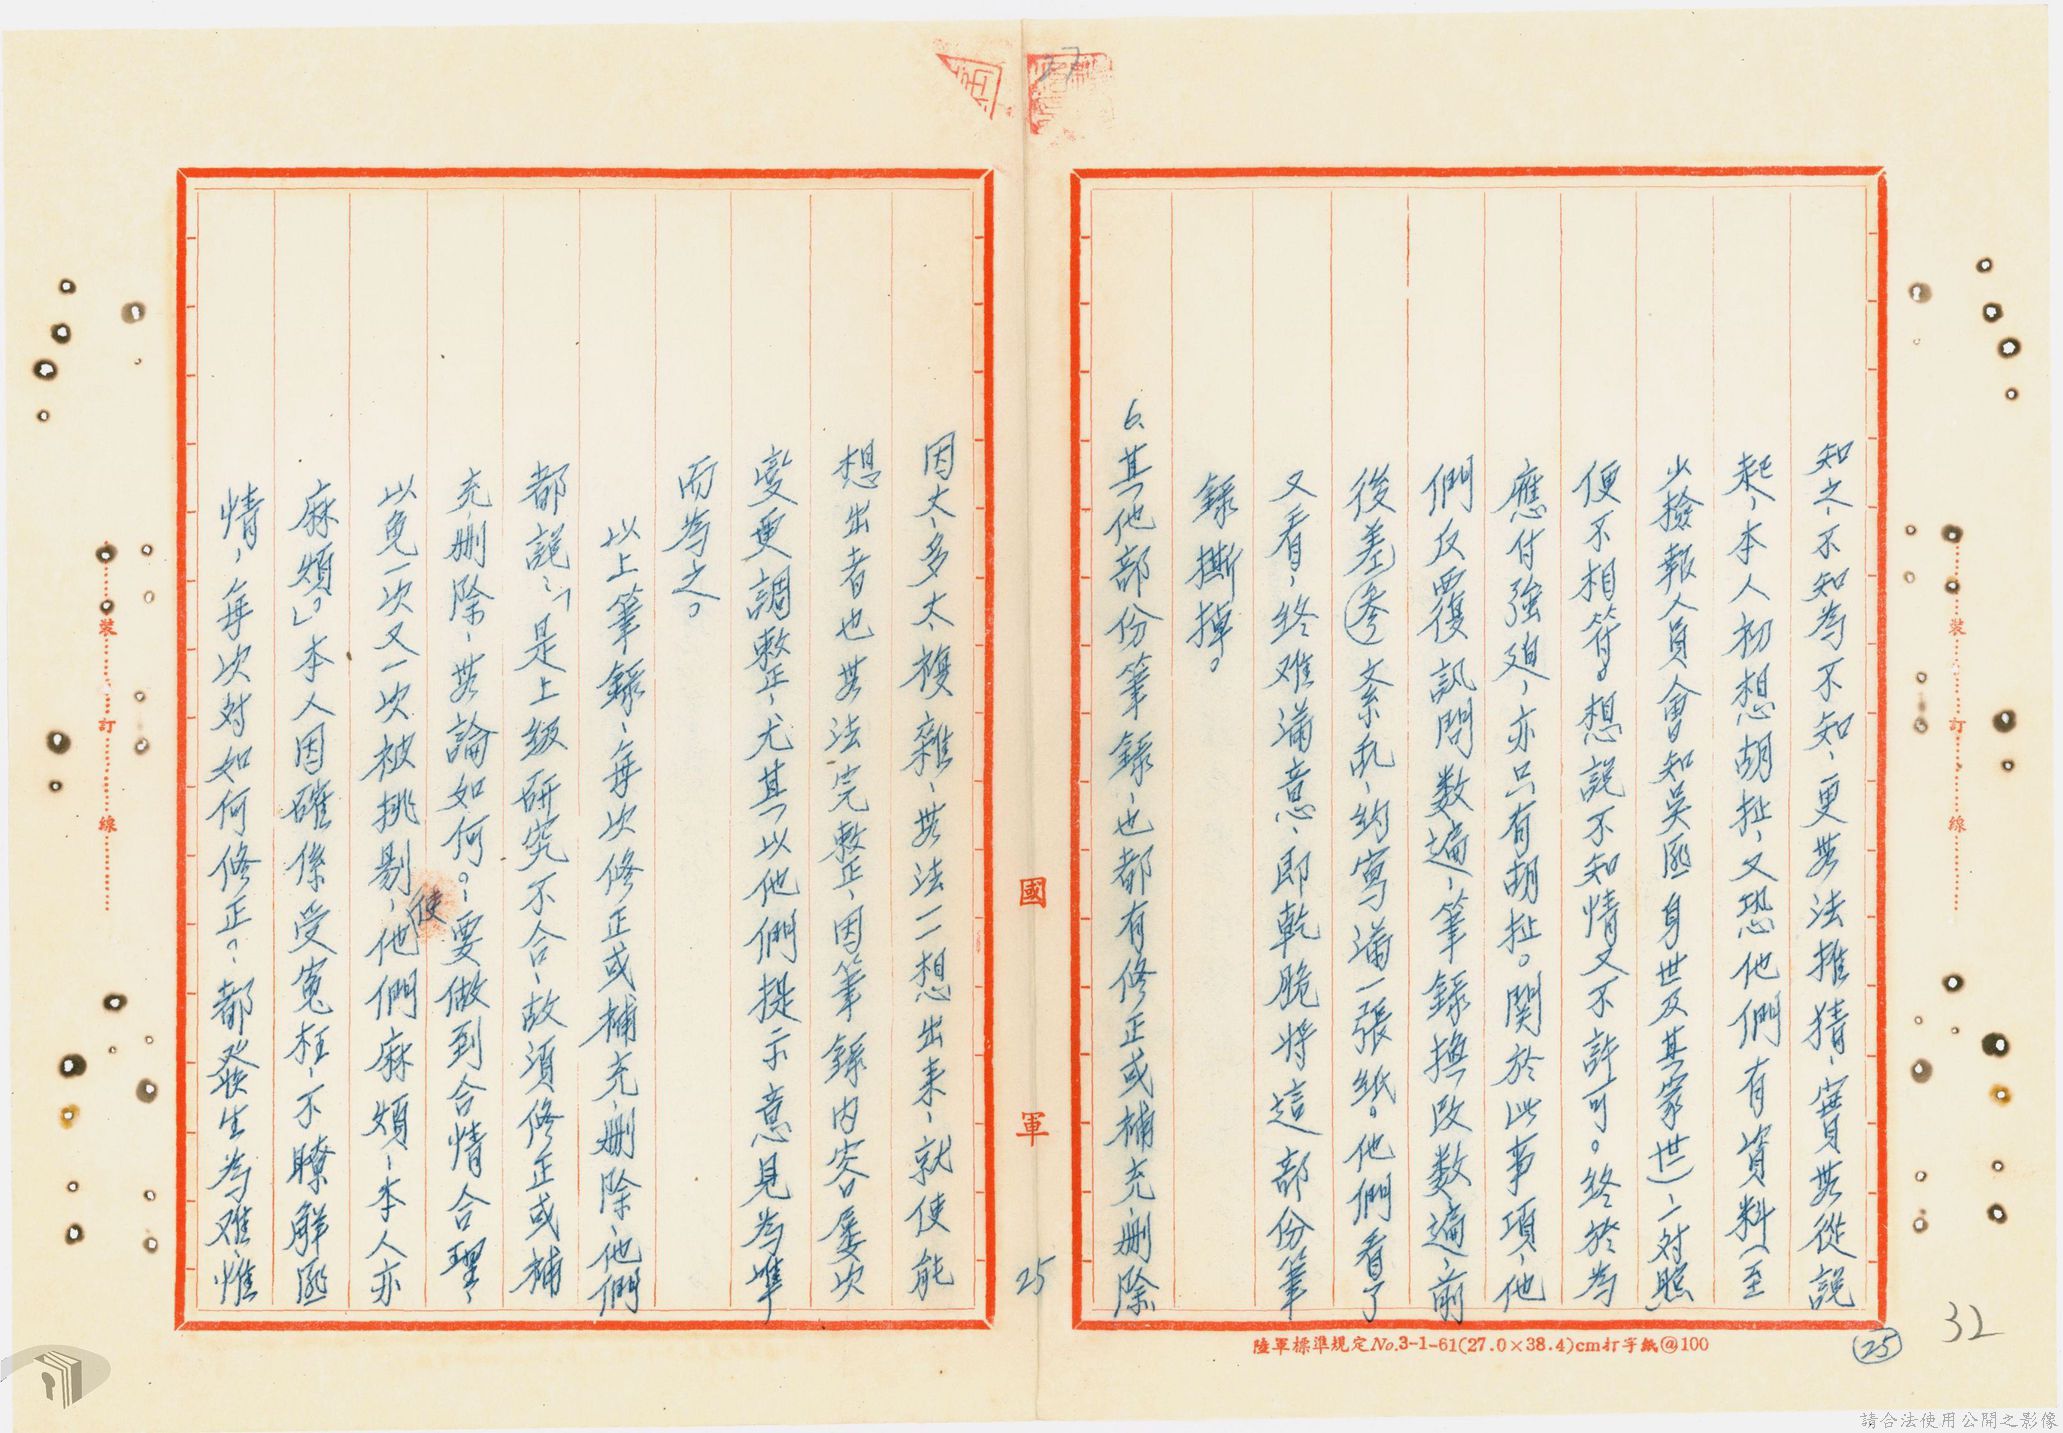 知之、不知為不知、更無法推猜、實無從說
起、本人初想胡扯、又恐他們有資料(至
少撥報人員會知吳匪身世及其家世)一對照
便不相符。想說不知情又不許可。終於為
應付強迫、亦只有胡扯。関於此事項、他
們反覆訊問数遍、筆錄撫改数遍、前
後差(參)紊乱、約寫滿一張紙。他們看了
又看、終难滿意、即乾脆將這部份筆
錄撕掉。
6.其他部份筆錄、也都有修正或補充、刪除
因太多太複雜、無法一一想出来、就使能
想出者也無法完整、因筆錄內容屢次
變更調整、尤其以他們提示意見為準
而為之。
以上筆錄、每次修正或補充、刪除、他們
都說:「是上級研究不合、故須修正或補
充、刪除、無論如何。、要做到合情合理、
以免一次又一次被挑剔、使他們麻煩、本人亦
麻煩」。本人因確係受寃枉、不瞭解匪
情、每次対如何修正?、都發生為难、惟
國軍
25
27
陸軍標準規定No.3-1-61(27.0×38.4)cm打字紙@100
25
32
裝訂線
裝訂線
請合法使用公開之影像